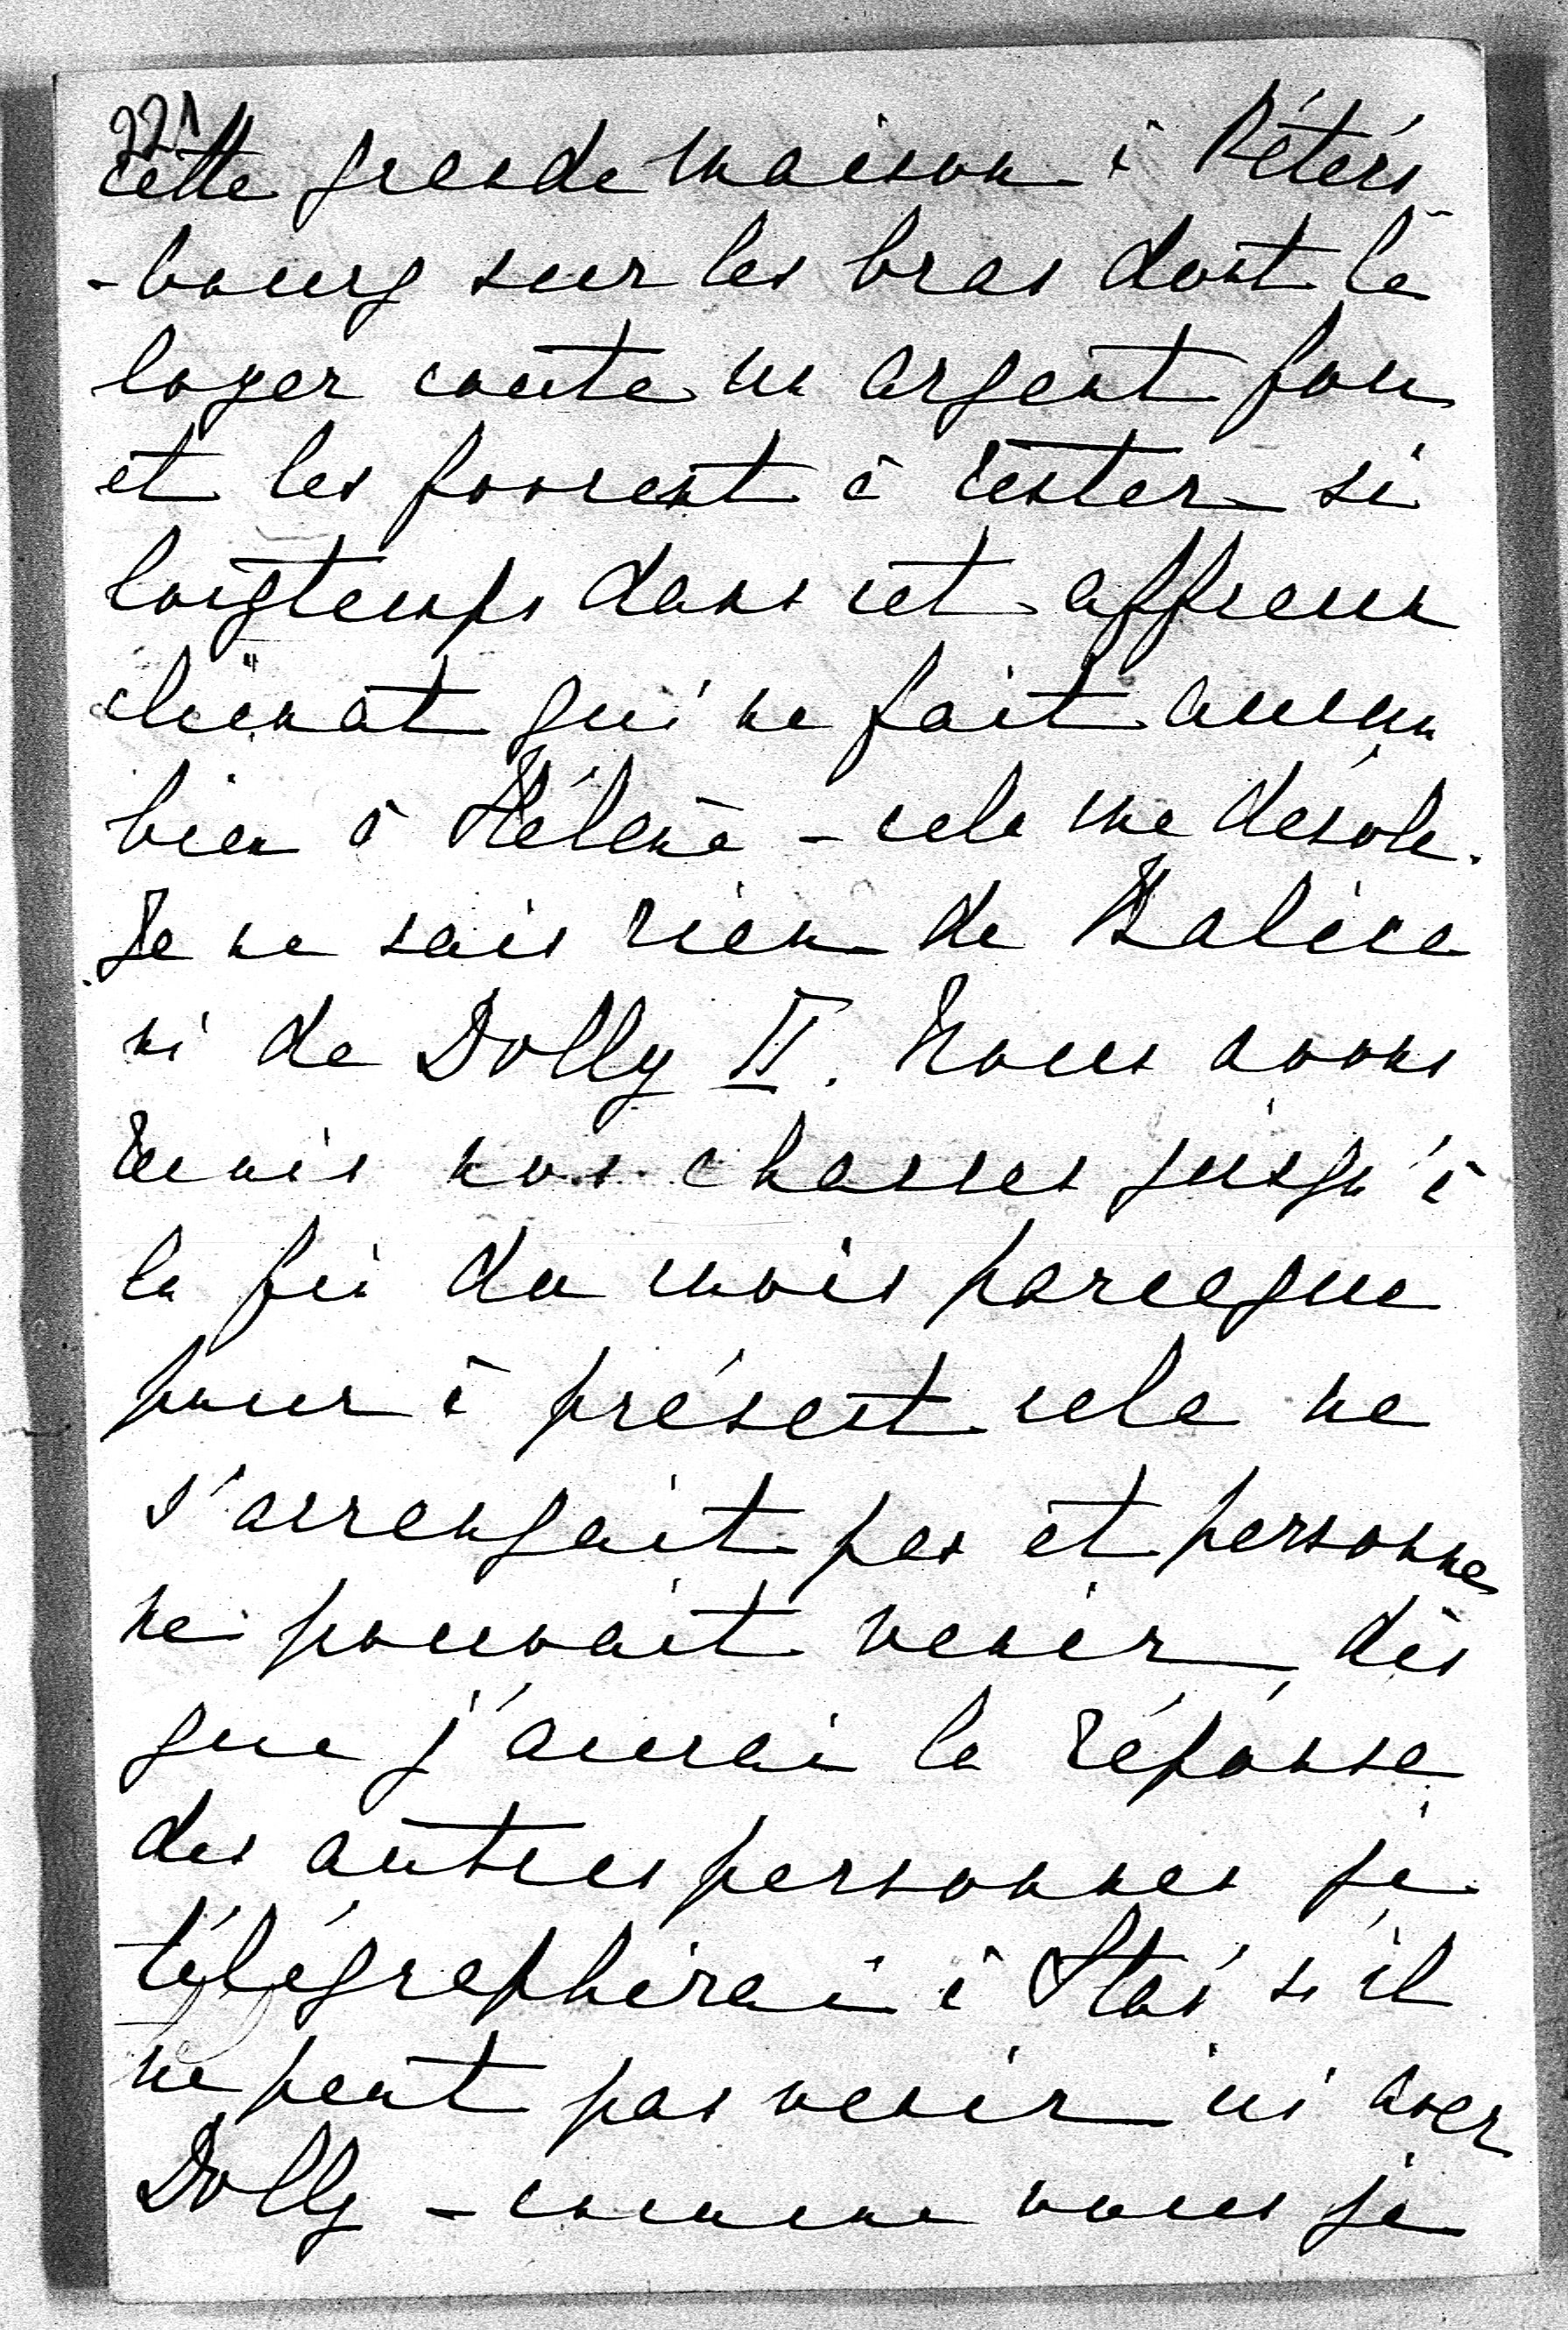 221
cette grande maison à Péters
-bourg sur les bras dont le
loyer coute un argent fou
et les forcent à rester si
longtemps dans cet affreux
climat qui ne fait aucun
bien à Hélène - cela me désole.
Je ne sais rien de
ni de Dolly II. Nous avons
remis nos chasses jusqu'à
la fin du mois parceque
pour à présent cela ne
s'arrangait pas et personne
ne pouvait venir, dès
que j'aurai la réponse
des autres personnes je
télégraphierai à Stas' s'il
ne peut pas venir ici avec
Dolly - comme vous je